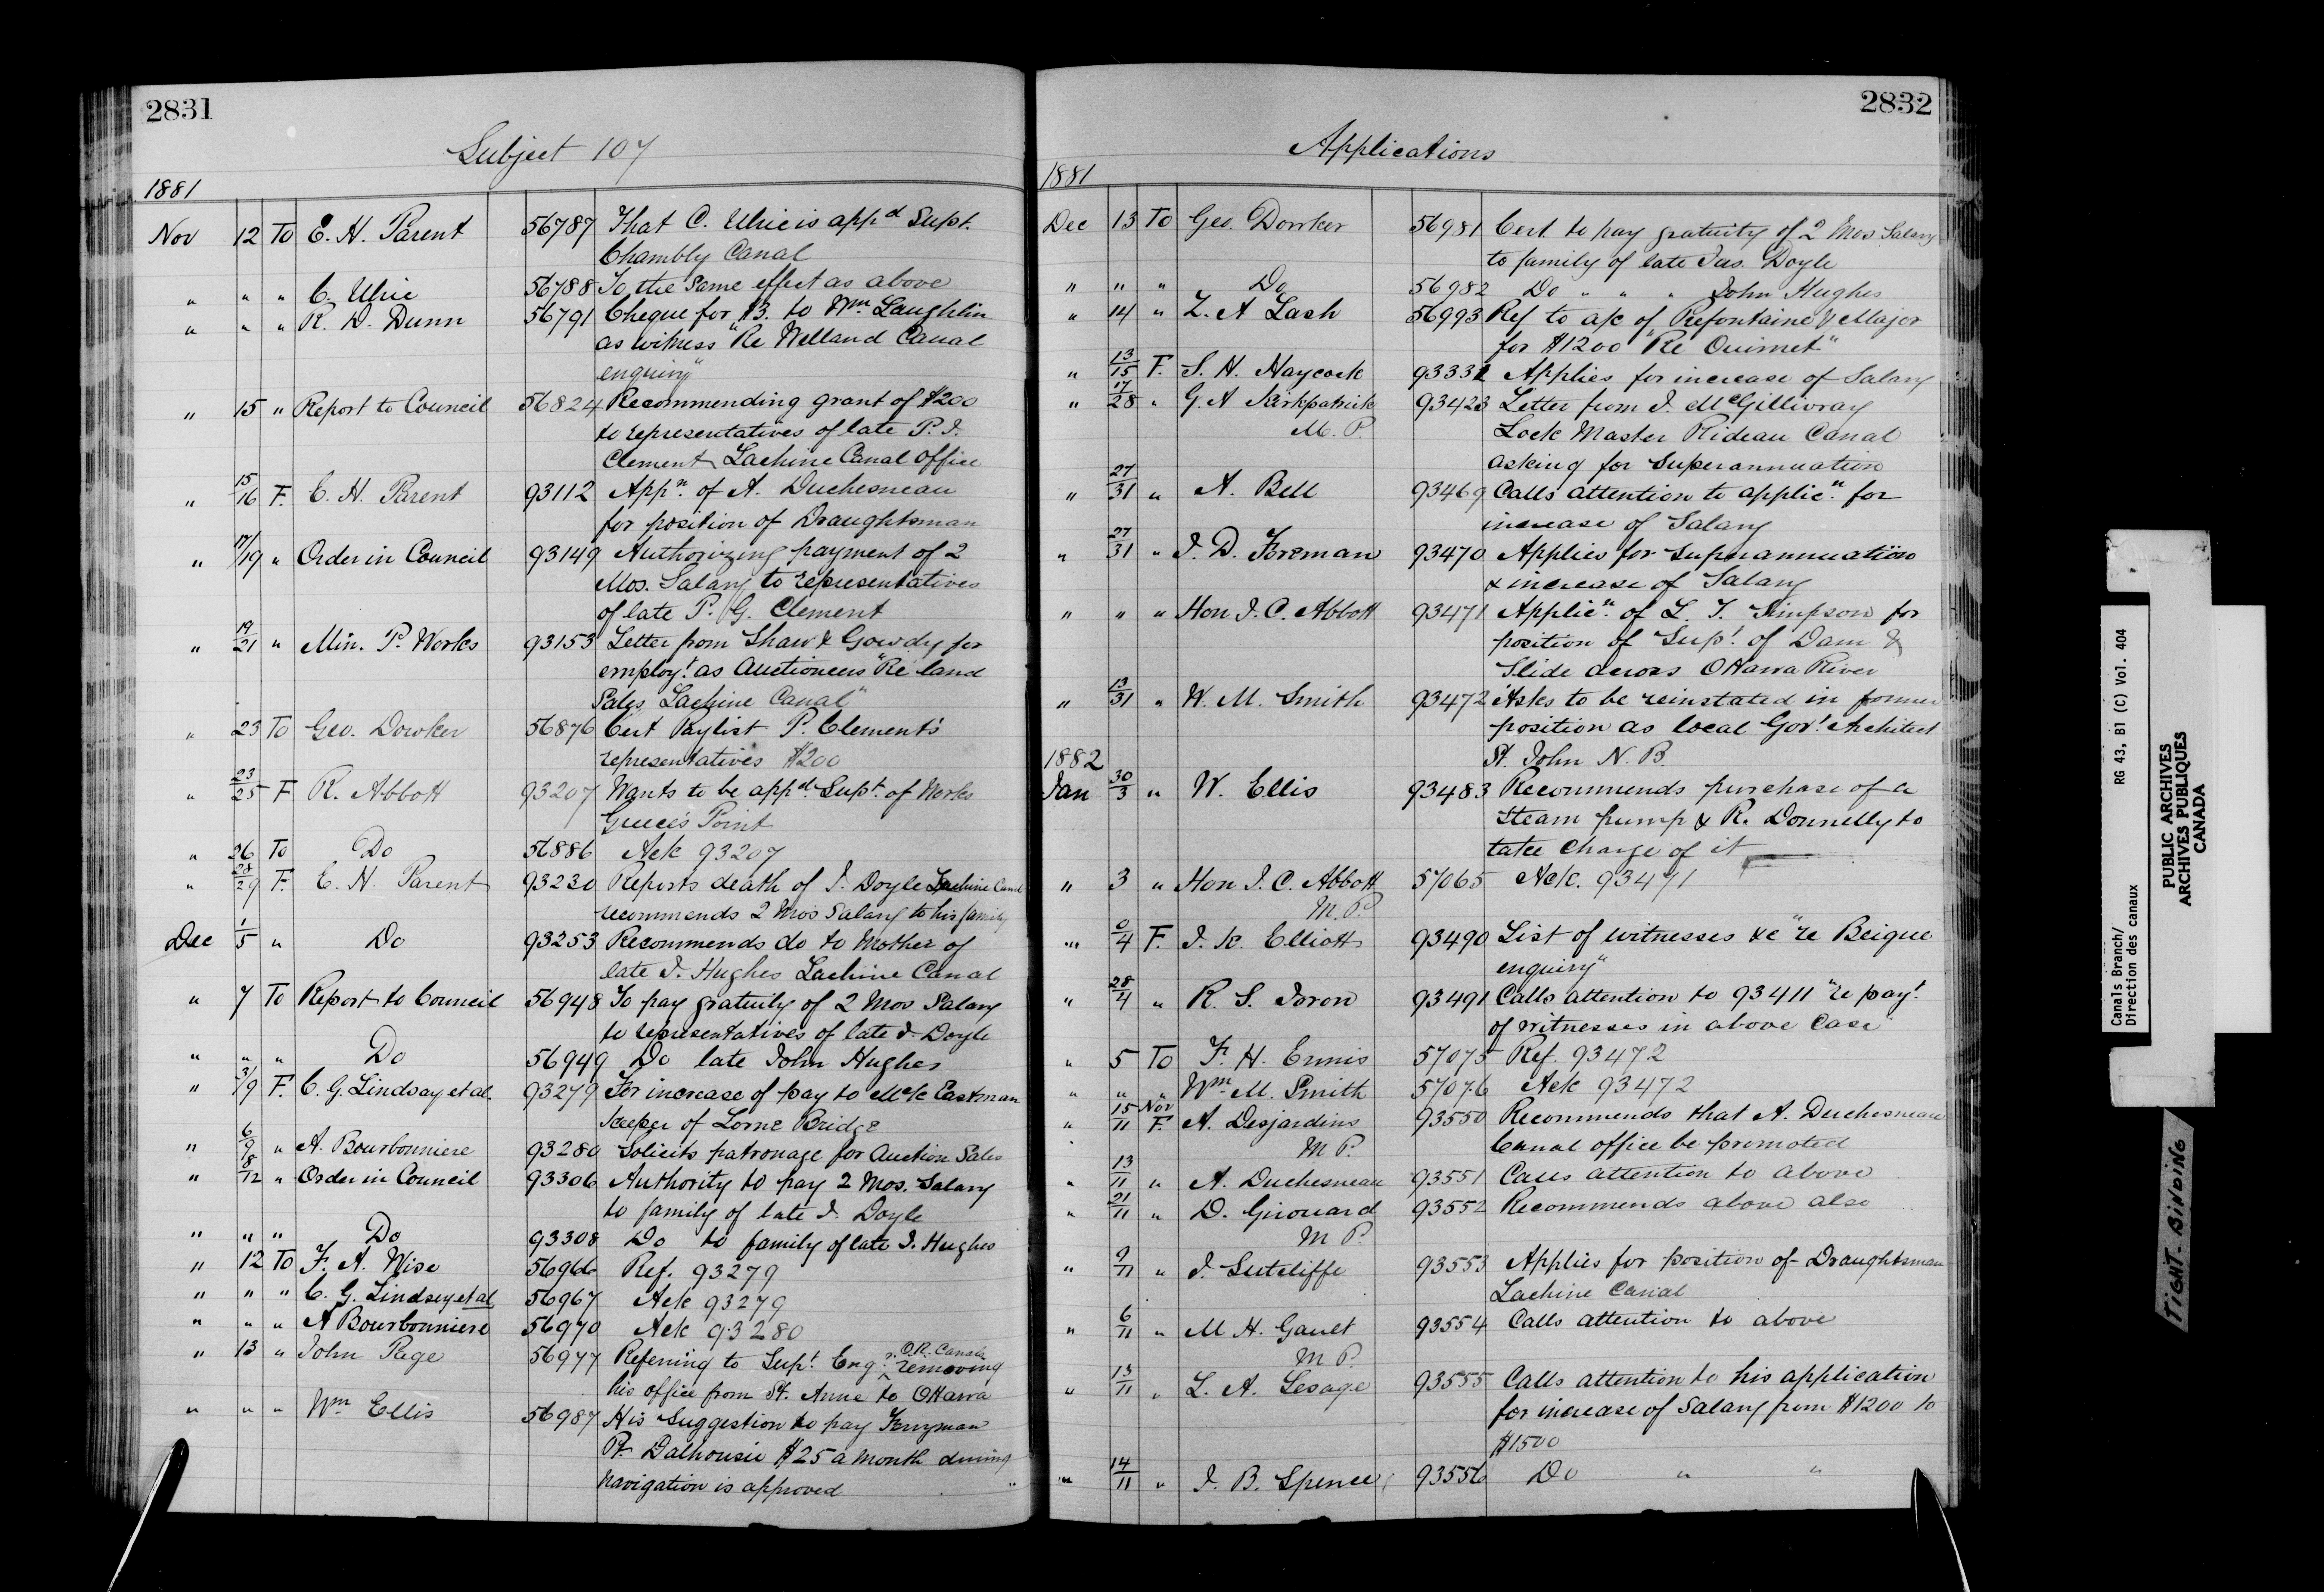 2831
Subject 107
1881
Nov 12 To E. H. Parent 56787 That C. Ulric is appd Supt.
Chambly Canal
" " " C. Ulric 56788 To the same effect as above
" " " R. D. Dunn 56791 Cheque for $3. to Wm Laughlin
as witness "Re Welland Canal
enquiry"
" 15 " Report to Council 56824 Recommending grant of $200
to representatives of late P. J.
Clement Lachine Canal office
" 15/16 F. E. H. Parent 93112 Appn. of A. Duchesneau
for position of Draughtsman
" 17/19 " Order in Council 93149 Authorizing payment of 2
Mos. Salary to representatives
of late P. G. Clement
" 19/21 " Min. P. Works 93153 Letter from Shaw & Gowdy for
employt. as Auctioneers "Re land
Sales Lachine Canal"
" 23 To Geo. Dowker 56876 Cert Paylist P. Clement's
representatives $200
" 23/25 F R. Abbott 93207 Wants to be appd. Supt. of Works
Greece's Point
" 26 To Do 56886 Ack 93207
" 28/29 F. E. H. Parent 93230 Reports death of J. Doyle Lachine Canal
recommends 2 Mos Salary to his family
Dec 1/5 " Do 93253 Recommends do to Mother of
late J. Hughes Lachine Canal
" 7 To Report to Council 56948 To pay gratuity of 2 Mos Salary
to representatives of late J. Doyle
" " " Do 56949 Do late John Hughes
" 3/9 F. C. G. Lindsay et al. 93279 For increase of pay to McK Eastman
Keeper of Lorne Bridge
" 6/9 " A. Bourbonniere 93280 Solicits patronage for Auction Sales
" 8/12 " Order in Council 93306 Authority to pay 2 Mos. Salary
to family of late J. Doyle
" " " Do 93308 Do to family of late J. Hughes
" 12 To F. A. Wise 56966 Ref. 93279
" " " C. G. Lindsey et al 56967 Ack 93279
" " " A Bourbonniere 56970 Ack 93280
" 13 " John Page 56977 Referring to Supt. Engr. O.R. Canals removing
his office from St. Anne to Ottawa
" " " Wm Ellis 56987 His Suggestion to pay Ferryman
Pt. Dalhousie $25 a month during
navigation is approved
2832
Applications
1881
Dec 13 To Geo. Dowker 56981 Cert. to pay gratuity of 2 Mos Salary
to family of late Jas. Doyle
" " " Do 56982 Do " " " John Hughes
" 14 " Z. A Lash 56993 Ref to a/c of Prefontaine & Major
for $1200 "Re Ouimet"
" 13/15 F. S. H. Haycock 93332 Applies for increase of Salary
" 17/28 " G. A Kirkpatrick 93423 Letter from J. McGillivray
M. P. Lock Master Rideau Canal
asking for Superannuation
" 27/31 " A. Bell 93469 Calls attention to applicn. for
increase of Salary
" 27/31 " J. D. Foreman 93470 Applies for Superannuation
& increase of Salary
" " " Hon J. C. Abbott 93471 Applicn. of L. T. Simpson for
position of Supt. of Dam &
Slide across Ottawa River
" 13/31 " W. M. Smith 93472 Asks to be reinstated in former
position as local Govt. Architect
St. John N. B.
1882
Jan 30/3 " W. Ellis 93483 Recommends purchase of a
Steam pump & R. Donnelly to
take Charge of it
" 3 " Hon J. C. Abbott 57065 Ack. 93471
M. P.
" 2/4 F. J. K. Elliott 93490 List of witnesses &c "re Beique
enquiry"
" 28/4 " R. S. 93491 Calls attention to 93411 "re payt.
of witnesses in above Case
" 5 To F. H. Ennis 57075 Ref. 93472
" " " Wm. M. Smith 57076 Ack 93472
" 15 Nov/11 F. A. Desjardins 93550 Recommends that A. Duchesneau
M P. Canal office be promoted
" 13/11 " A. Duchesneau 93551 Calls attention to above
" 21/11 " D. Girouard 93552 Recommends above also
M P.
" 9/11 " J. Sutcliffe 93553 Applies for position of Draughtsman
Lachine Canal
" 6/11 " M H. Gault 93554 Calls attention to above
M P.
" 13/11 " L. A. Lesage 93555 Calls attention to his application
for increase of Salary from $1200 to
$1500
" 14/11 " J. B. Spence 93556 Do " "
Canals Branch/
Direction des canaux
RG 43, B1 (C) Vol. 404
PUBLIC ARCHIVES
ARCHIVES PUBLIQUES
CANADA
TIGHT BINDING